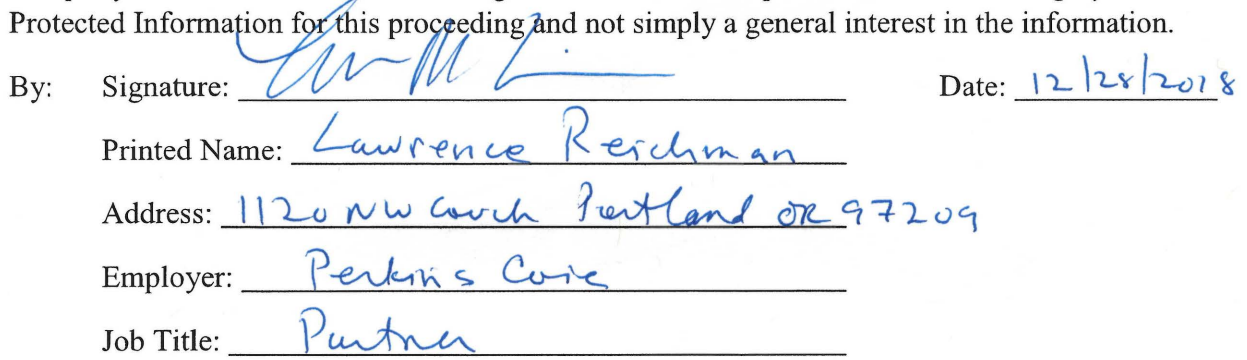 Protected Information for this proceeding and not simply a general interest in the information.
By: Signature: Date: 12/28/2018
Printed Name: Lawrence Reichman
Address: 1120 NW Couch Portland OR 97209
Employer: Perkins Coie
Job Title: Partner